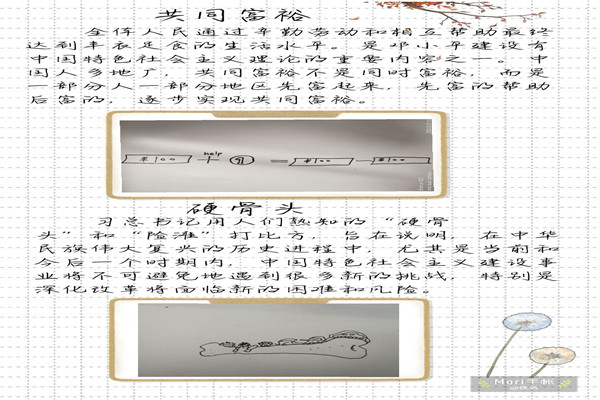 共同富裕
全体人民通过辛勤劳动和相互帮助最终
达到丰衣足食的生活水平。是邓小平建设有
中国特色社会主义理论的重要内容之一。中
国人多地广，共同富裕不是同时富裕，而是
一部分人一部分地区先富起来，先富的帮助
后富的，逐步实现共同富裕。
help
硬骨头
习总书记用人们熟知的“硬骨
头”和“险滩”打比方，旨在说明，在中华
民族伟大复兴的历史进程中，尤其是当前和
今后一个时期内，中国特色社会主义建设事
业将不可避免地遇到很多新的挑战，特别是
深化改革将面临新的困难和风险。
Mori手帐